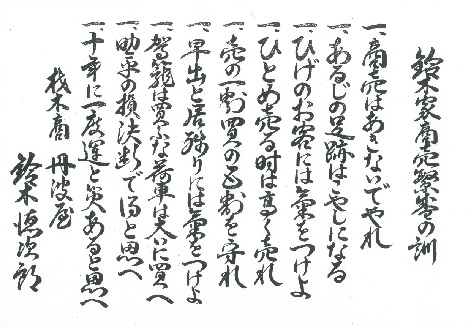 鈴木家商売繁盛の訓
一、商売はあきないでやれ
一、あるじの足跡はこやしになる
一、ひげのお客には気をつけよ
一、ひとめ売る時は高く売れ
一、売の一割買への五割を守れ
一、早出と居残りには気をつけよ
一、駕籠は買ふな荷車は大いに買へ
一、助平の損決断で得と思へ
一、十年に一度運と災あると思へ
桟木商 丹波屋
鈴木 徳次郎